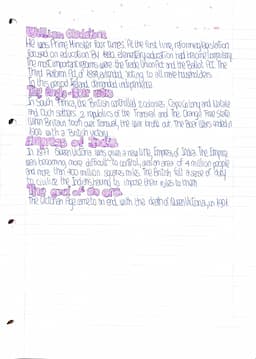 William Gladstone
He was Prime Minister four times. At the first time, reforming legislation
focused on education. By 1880 elementary education had become compulsory.
The most important reforms were the Trade Union Act and the Ballot Act. The
Third Reform Act of 1884 extended voting to all male householders.
In this period Ireland demanded independence.
The Anglo-Boer wars
In South Africa, the British controlled 2 colonies: Cape Colony and Natal
And Dutch settlers 2 republics of the Transvaal and The Orange Free State
When Britain took over Transvaal, the war broke out. The Boer Wars ended in
1902 with a British victory.
Empress of India
In 1877 Queen Victoria was given a new title, Empress of India. The Empire
was becoming more difficult to control, and an area of 4 million people
and more than 400 million square miles. The British felt it a sense of duty
to civilize the Indians having to impose their rules to them
The end of an era
The Victorian Age came to an end with the death of Queen Victoria, in 1901.